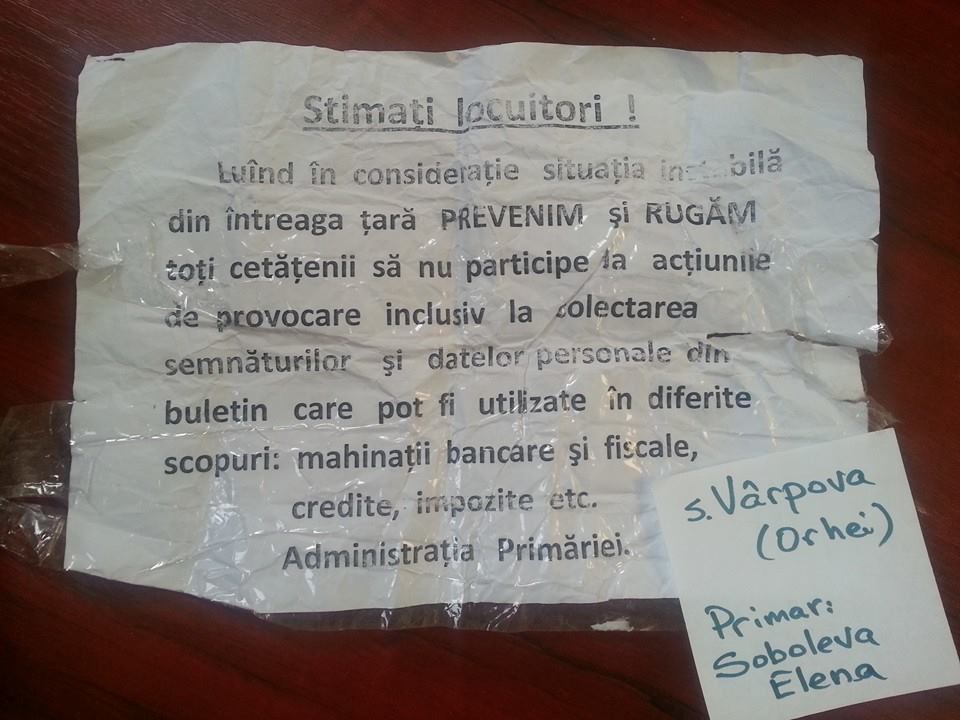 Stimați locuitori !
Luînd în considerație situația instabilă
din întreaga țară PREVENIM și RUGĂM
toți cetățenii să nu participe la acțiunile
de provocare inclusiv la colectarea
semnăturilor și datelor personale din
buletin care pot fi utilizate în diferite
scopuri: mahinații bancare și fiscale,
credite, impozite etc.
Administrația Primăriei.
s. Vârpova
(Orhei)
Primar:
Soboleva
Elena